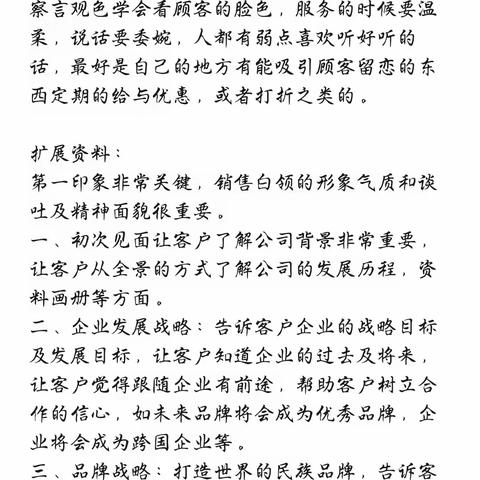 察言观色学会看顾客的脸色，服务的时候要温
柔，说话要委婉，人都有弱点喜欢听好听的
话，最好是自己的地方有能吸引顾客留恋的东
西定期的给与优惠，或者打折之类的。
扩展资料：
第一印象非常关键，销售白领的形象气质和谈
吐及精神面貌很重要。
一、初次见面让客户了解公司背景非常重要，
让客户从全景的方式了解公司的发展历程，资
料画册等方面。
二、企业发展战略：告诉客户企业的战略目标
及发展目标，让客户知道企业的过去及将来，
让客户觉得跟随企业有前途，帮助客户树立合
作的信心，如未来品牌将会成为优秀品牌，企
业将会成为跨国企业等。
三、品牌战略：打造世界的民族品牌，告诉客